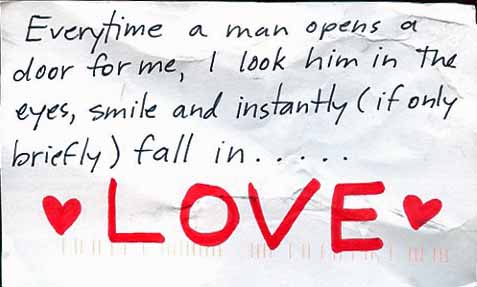 Everytime a man opens a
door for me, I look him in the
eyes, smile and instantly (if only
briefly) fall in.....
LOVE